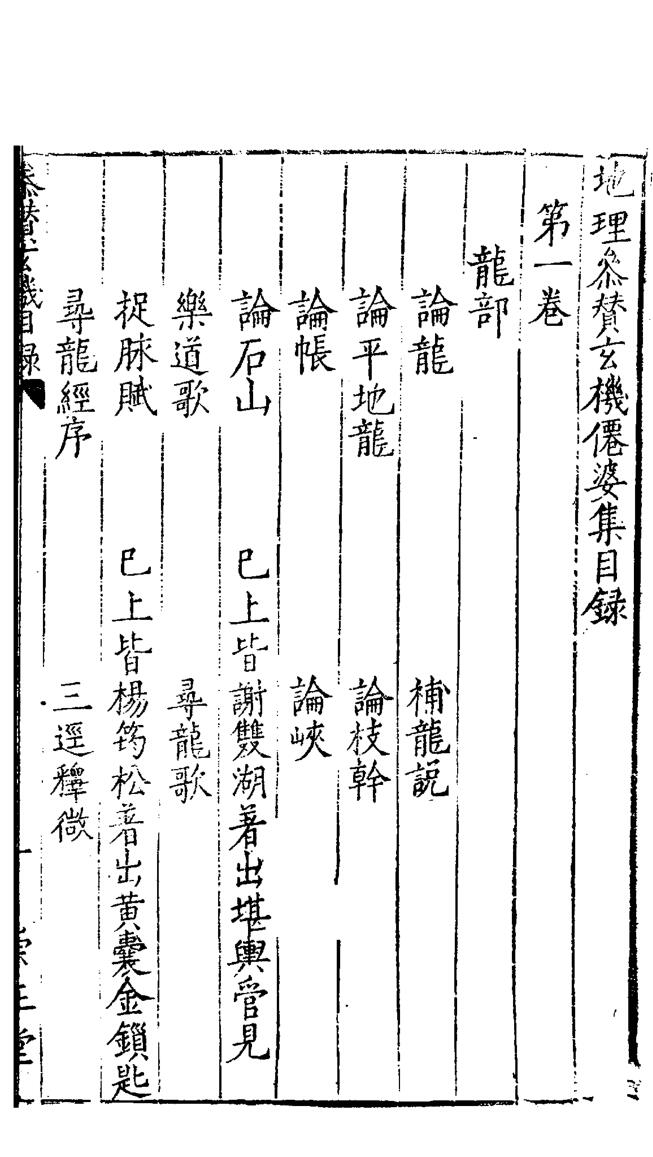 地理叅賛玄機僊婆集目録
第一卷
龍部
論龍　補龍説
論平地龍　論枝幹
論帳　論峽
論石山　巳上皆謝雙湖著出堪輿管見
樂道歌　尋龍歌
捉脉賦　巳上皆楊筠松著出黄囊金鎖匙
尋龍經序　三逕釋微
叅賛玄機目録　一